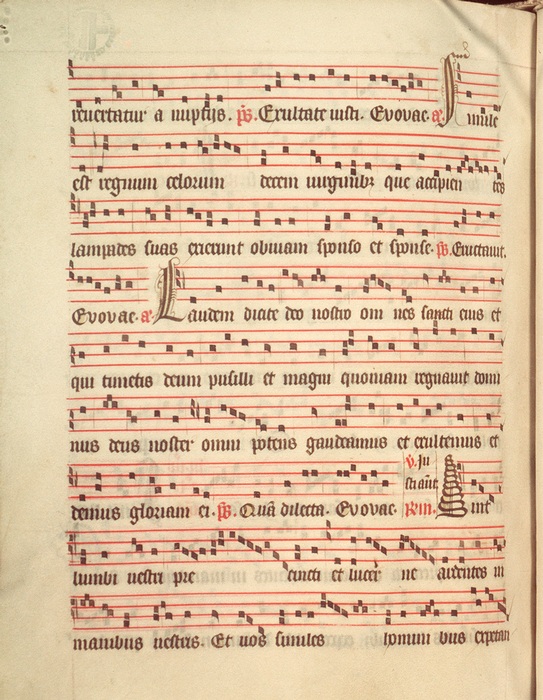 reuertatur a nuptijs. ps. Exultate iusti. Evovae. a. Simile
est regnum celorum decem uirginibz que accipien tes
lampades suas exierunt obuiam sponso et sponse. ps. Eructauit.
Evovae. a. Laudem dicite deo nostro om nes sancti eius et
qui timetis deum pusilli et magni quoniam regnauit domi
nus deus noster omni potens gaudeamus et exultemus et
demus gloriam ei. ps. Quā dilecta. Evovae. R in. Sint
v. Iu
sti aūt
lumbi uestri pre cincti et lucer ne ardentes in
manibus uestris. Et uos similes homini bus expectan